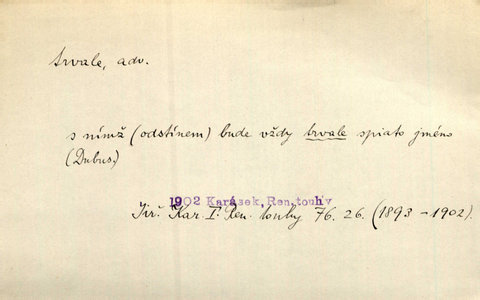 trvale, adv.
s nímž (odstínem) bude vždy trvale spiato jméno
(Dubus.)
1902 Karásek, Ren.touh v
Jiř. Kar. I. Ren. touhy 76. 26. (1893 – 1902).